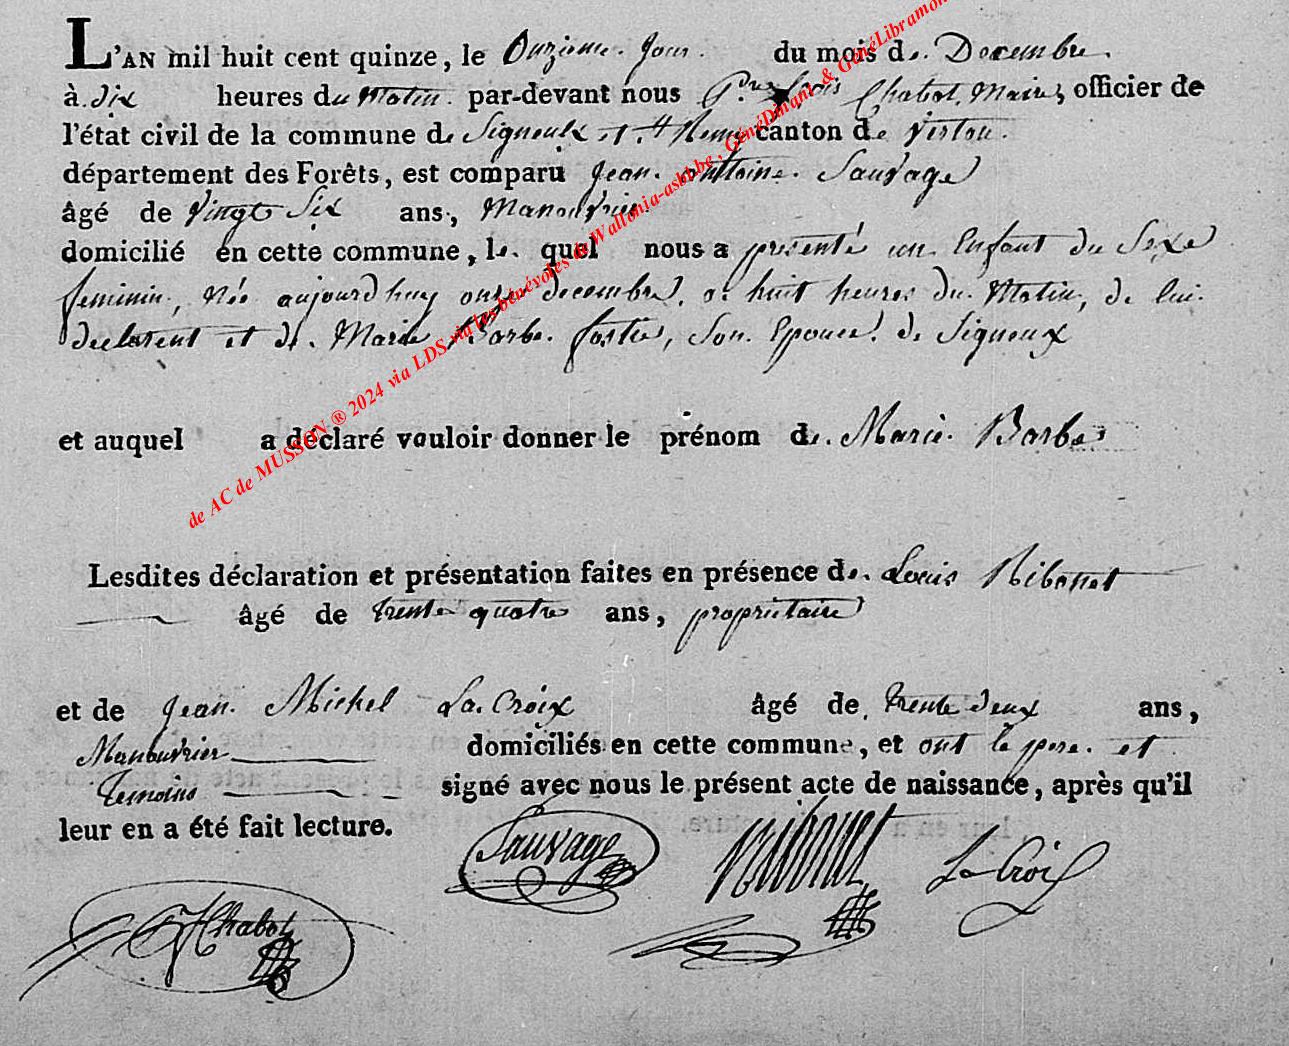 L'AN mil huit cent quinze, le Onzieme Jour du mois de Decembre
à dix heures du Matin par-devant nous Chabot, Maire, officier de
l'état civil de la commune de Signeulx et St Remy canton de Virton
département des Forêts, est comparu Jean Anttoine Sauvage
âgé de Vingt Six ans, Manouvrier
domicilié en cette commune, le quel nous a presenté un Enfant du Sexe
feminin, Née aujourd'huy onze decembre, a huit heures du Matin, de lui
declarent et de Marie Barbe fostie, Son Epouce de Signeux
et auquel a déclaré vouloir donner le prénom de Marie Barbe
Lesdites déclaration et présentation faites en présence de Louis Ribonet
âgé de trente quatre ans, propriétaire
et de Jean Michel La Croix âgé de trente deux ans,
Manouvrier domiciliés en cette commune, et ont le pere et
Temoins signé avec nous le présent acte de naissance, après qu'il
leur en a été fait lecture.
Sauvage Ribonet La Croix
Chabot
de AC de MUSSON ® 2024 via LDS via les bénévoles de Wallonia-asbl.be, GénéDinant & GénéLibramon